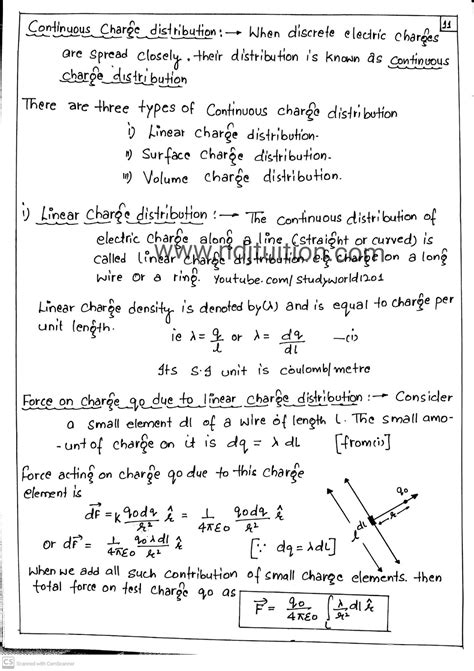 11
Continuous Charge distribution :→ When discrete electric charges
are spread closely. their distribution is known as continuous
charge distribution
There are three types of Continuous charge distribution
i) Linear charge distribution.
ii) Surface charge distribution.
iii) Volume charge distribution.
i) Linear Charge distribution :→ The continuous distribution of
electric charge along a line (straight or curved) is
called linear charge distribution eg charge on a long
wire or a ring. Youtube.com/studyworld1201
Linear charge density is denoted by (λ) and is equal to charge per
unit length.
ie λ = q/l or λ = dq/dl —(i)
Its S.I unit is coulomb/metre
Force on charge q0 due to linear charge distribution :→ Consider
a small element dl of a wire of length l. The small amo-
-unt of charge on it is dq = λ dl [from(i)]
Force acting on charge q0 due to this charge
element is
dF⃗ = k q0dq/r² r̂ = 1/4πε0 q0dq/r² r̂
or dF⃗ = 1/4πε0 q0λdl/r² r̂ [∵ dq = λdl]
q0
r
dl
l
When we add all such contribution of small charge elements. then
total force on test charge q0 as F⃗ = q0/4πε0 ∫ λ/r² dl r̂
CS Scanned with CamScanner